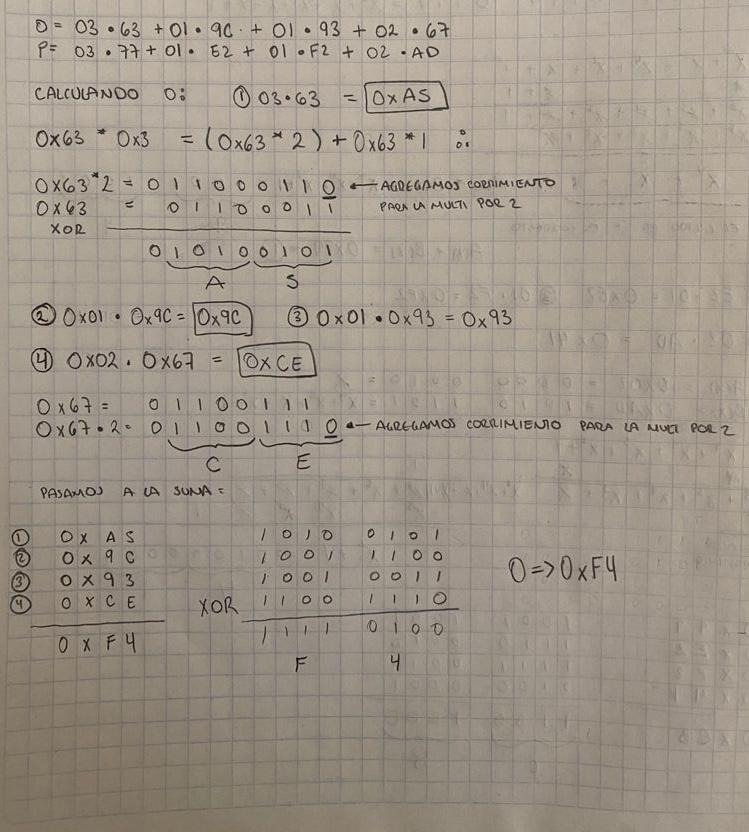 O = 03 • 63 + 01 • 9C + 01 • 93 + 02 • 67
P = 03 • 77 + 01 • E2 + 01 • F2 + 02 • AD
CALCULANDO O: ① 03•63 = 0xA5
0x63 * 0x3 = (0x63 * 2) + 0x63 * 1 ∴
0x63*2 = 0 1 1 0 0 0 1 1 0 ← AGREGAMOS CORRIMIENTO
0x63 = 0 1 1 0 0 0 1 1 PARA LA MULTI POR 2
XOR
0 1 0 1 0 0 1 0 1
A 5
② 0x01 • 0x9C = 0x9C ③ 0x01 • 0x93 = 0x93
④ 0x02 • 0x67 = 0xCE
0x67 = 0 1 1 0 0 1 1 1
0x67•2 = 0 1 1 0 0 1 1 1 0 ← AGREGAMOS CORRIMIENTO PARA LA MULTI POR 2
C E
PASAMOS A LA SUMA =
① 0x A5 1 0 1 0 0 1 0 1
② 0x 9C 1 0 0 1 1 1 0 0
③ 0x 93 1 0 0 1 0 0 1 1
④ 0x CE XOR 1 1 0 0 1 1 1 0
0x F4 1 1 1 1 0 1 0 0
F 4
O => 0xF4